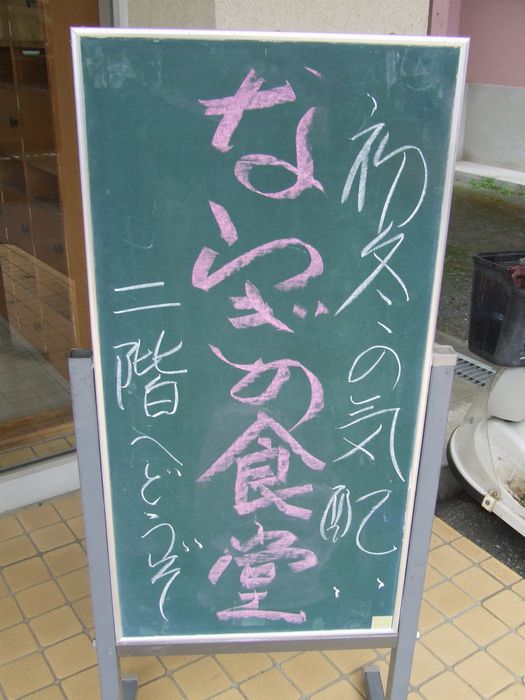 初冬の気配、、
なづきの食堂
二階へどうぞ